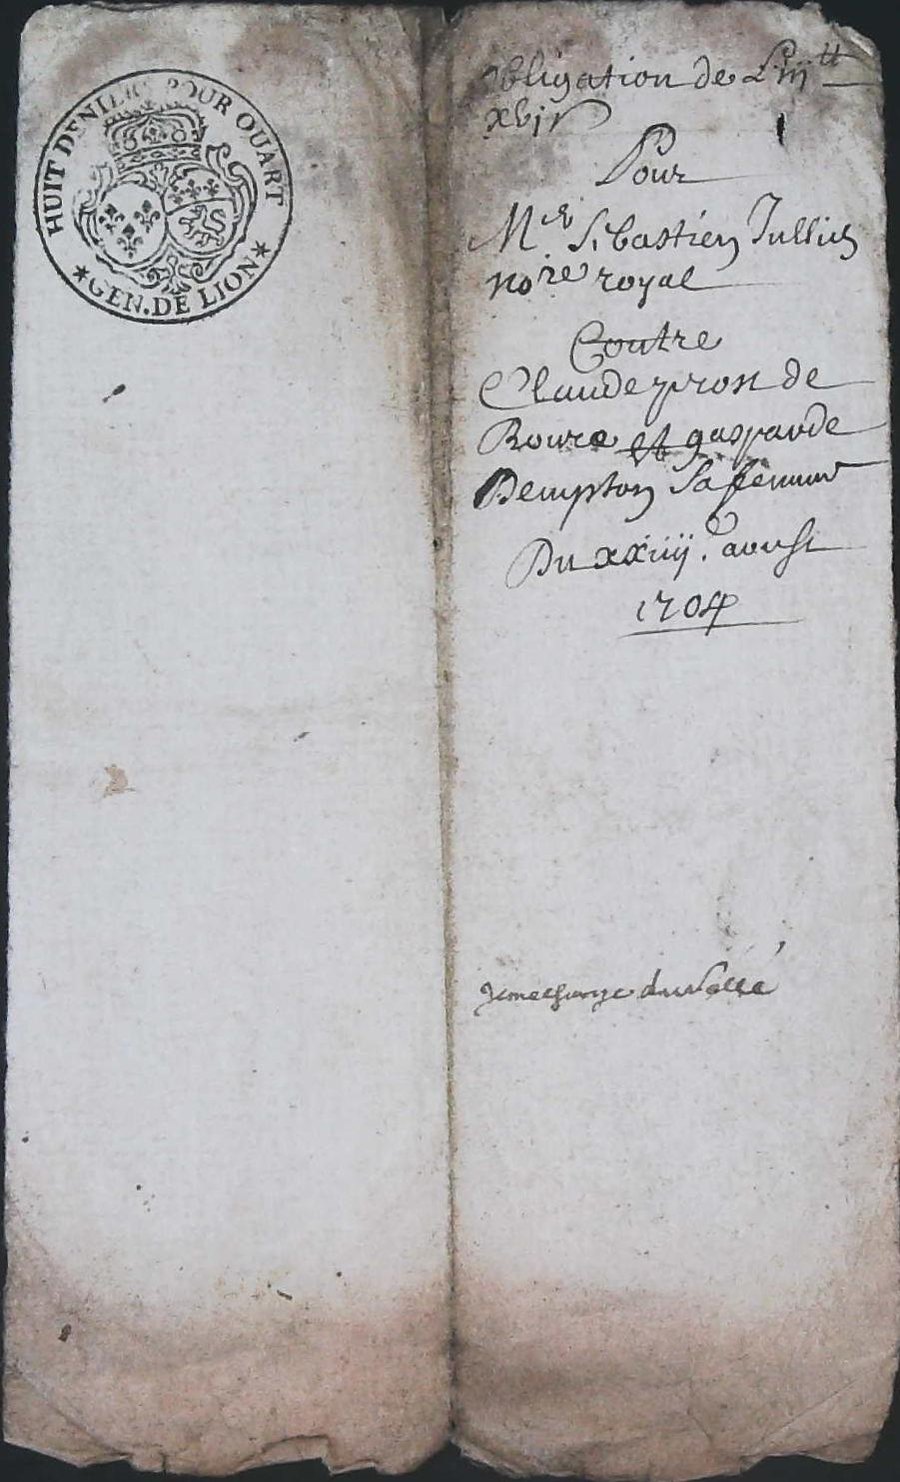 HUIT DENIERS POUR QUART
*GEN. DE LION*
obligation de Liii ₶
xvj s
Pour
Mre Sibastien Jullien
nore royal
Contre
Claude pron de
Roure et gasparde
Dempton sa femme
Du xxiiij. aoust
1704